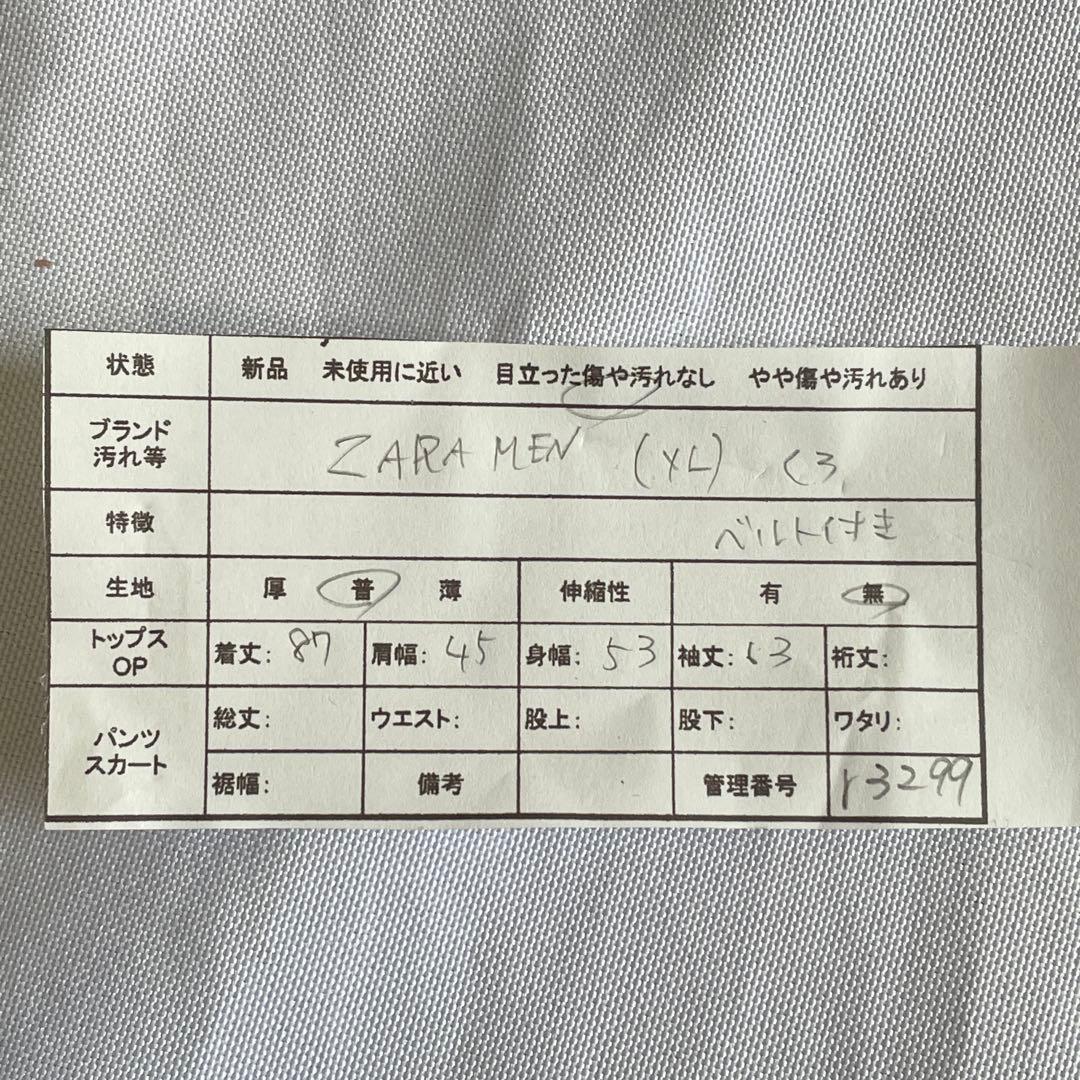 状態 新品 未使用に近い 目立った傷や汚れなし やや傷や汚れあり
ブランド
汚れ等 ZARA MEN (XL)
特徴 ベルト付き
生地 厚 普 薄 伸縮性 有 無
トップス
OP 着丈: 87 肩幅: 45 身幅: 53 袖丈: 63 裄丈:
パンツ
スカート 総丈: ウエスト: 股上: 股下: ワタリ:
裾幅: 備考 管理番号 r3299